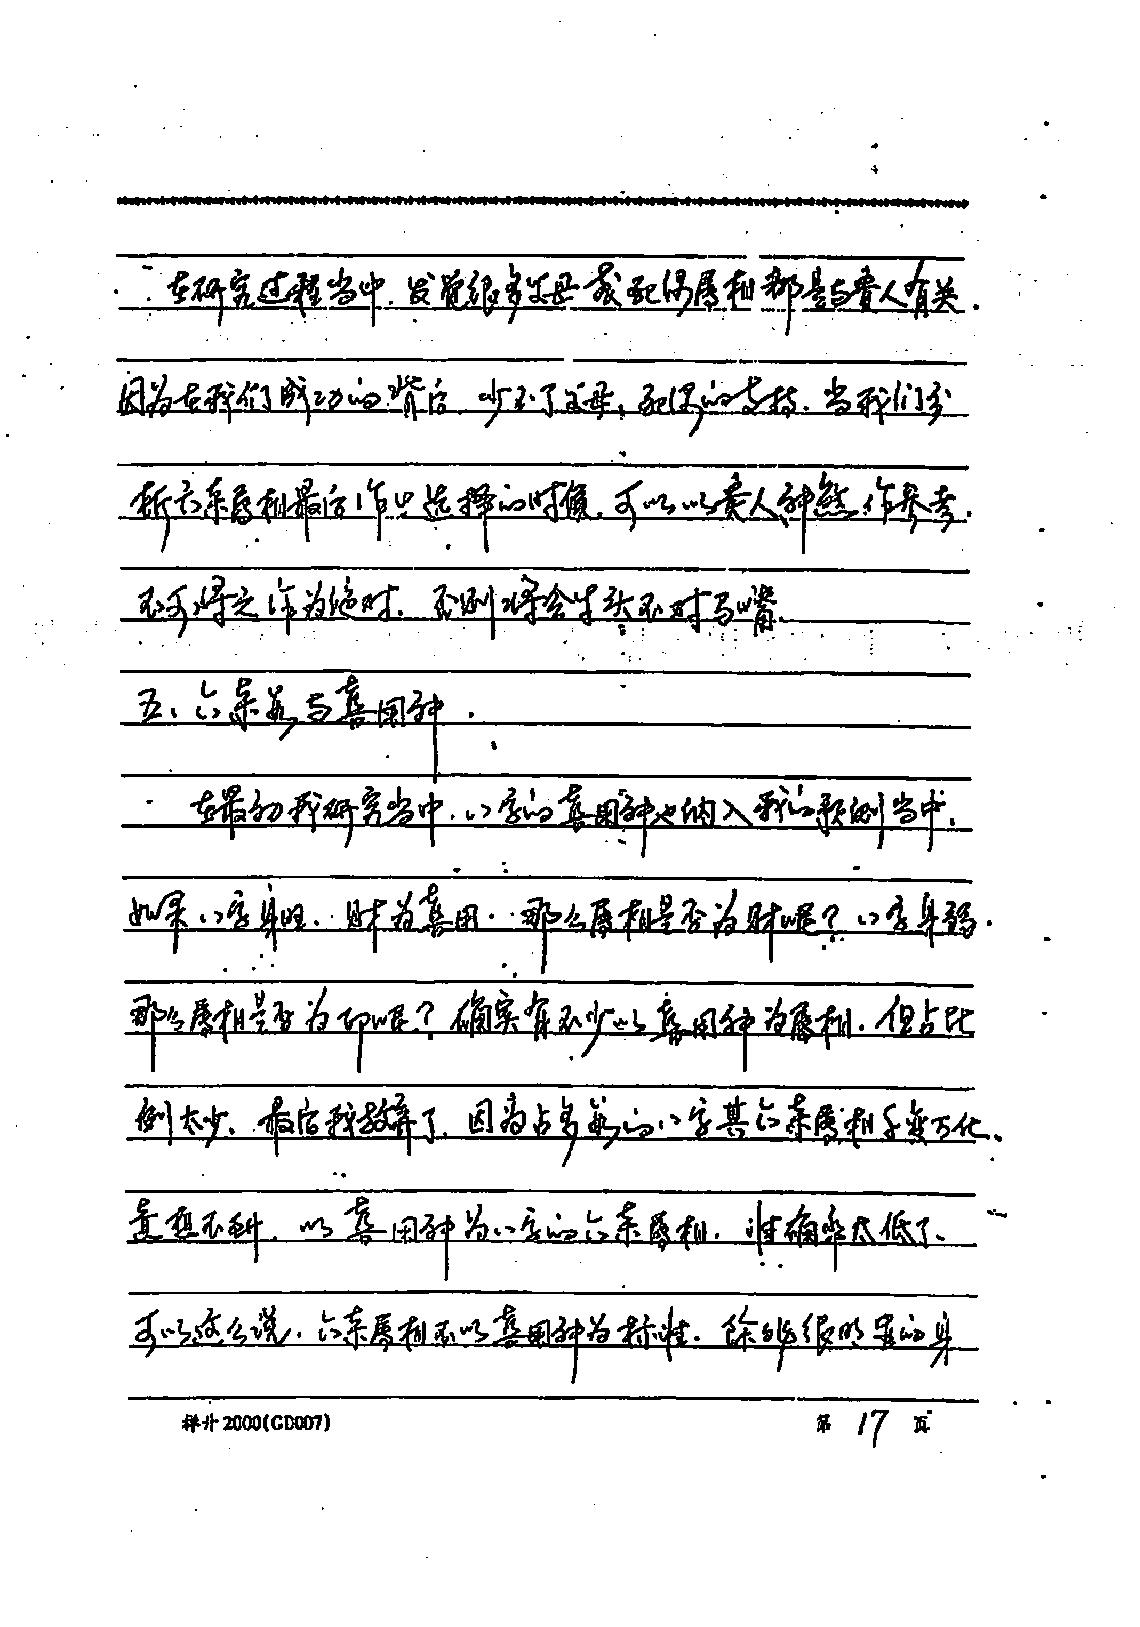 在研究过程当中，发觉很多父母或配偶属相都是与贵人有关，
因为在我们成功的背后，少不了父母、配偶的支持，当我们分
析六亲属相最后作出选择的时候，可以以贵人神煞作参考，
不可将之作为绝对，否则将会牛头不对马嘴。
五、六亲与喜用神．
在最初我研究当中，八字的喜用神也纳入我的预测当中，
如果八字身旺，财为喜用，那么属相是否为财呢？八字身弱，
那么属相是否为印呢？确实有不少以喜用神为属相，但占比
例太少，最后我放弃了，因为占多数的八字其六亲属相千变万化、
意想不到，以喜用神为八字的六亲属相，准确率太低了、
可以这么说，六亲属相不以喜用神为标准，除非很明显的身
祥升2000(GD007)
第 17 页